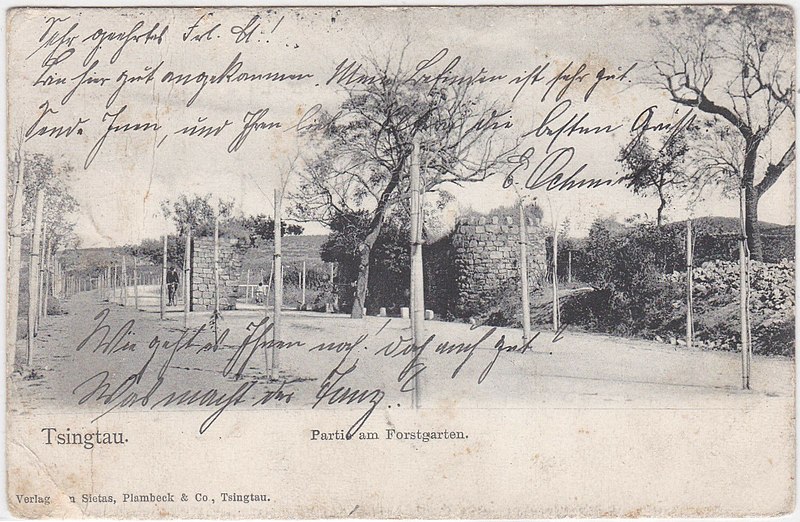 Sehr geehrtes Frl. U.!
Bin hier gut angekommen. Mein Befinden ist sehr gut
Sende Ihnen, und Ihren die besten Grüße
E. Ochmi
Wie geht es Ihnen noch? doch auch gut!
Was macht der Tanz?
Tsingtau.
Partie am Forstgarten.
Verlag n Sietas, Plambeck & Co, Tsingtau.